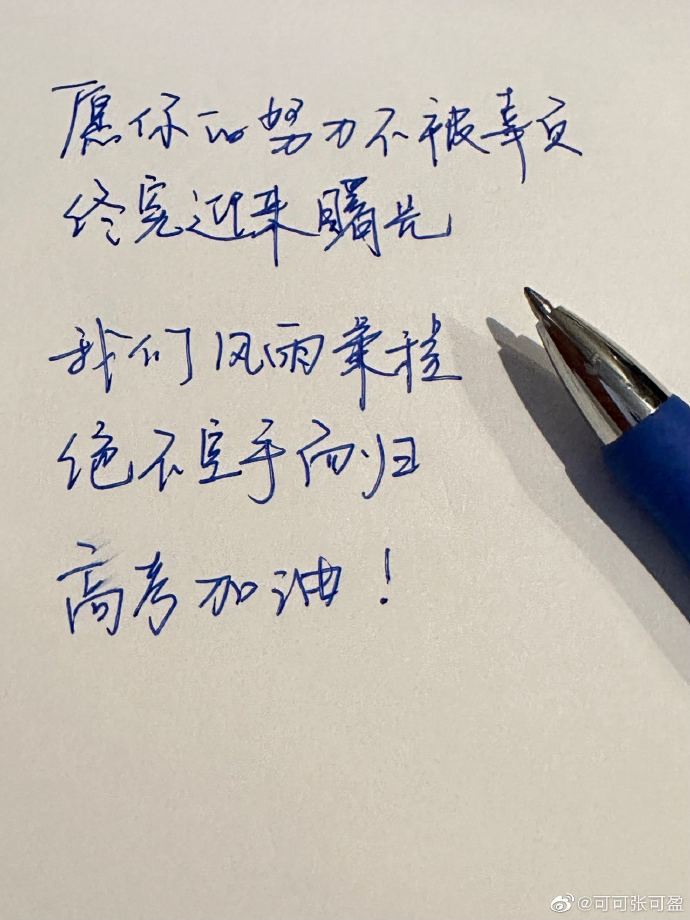 愿你的努力不被辜负
终究迎来曙光
我们风雨兼程
绝不空手而归
高考加油！
@可可张可盈